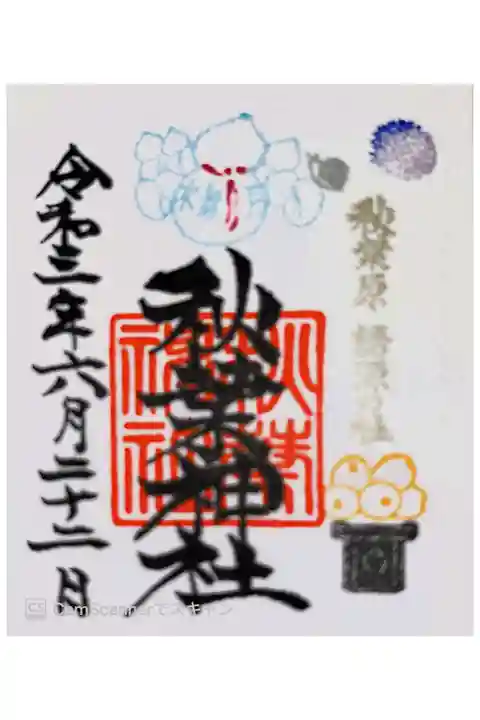 秋葉原
秋葉神社
令和三年六月二十二日
CS CamScannerでスキャン